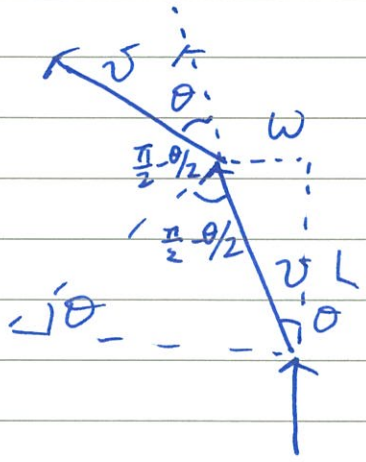 v
θ
ω
π/2-θ/2
π/2-θ/2
v L
θ
θ